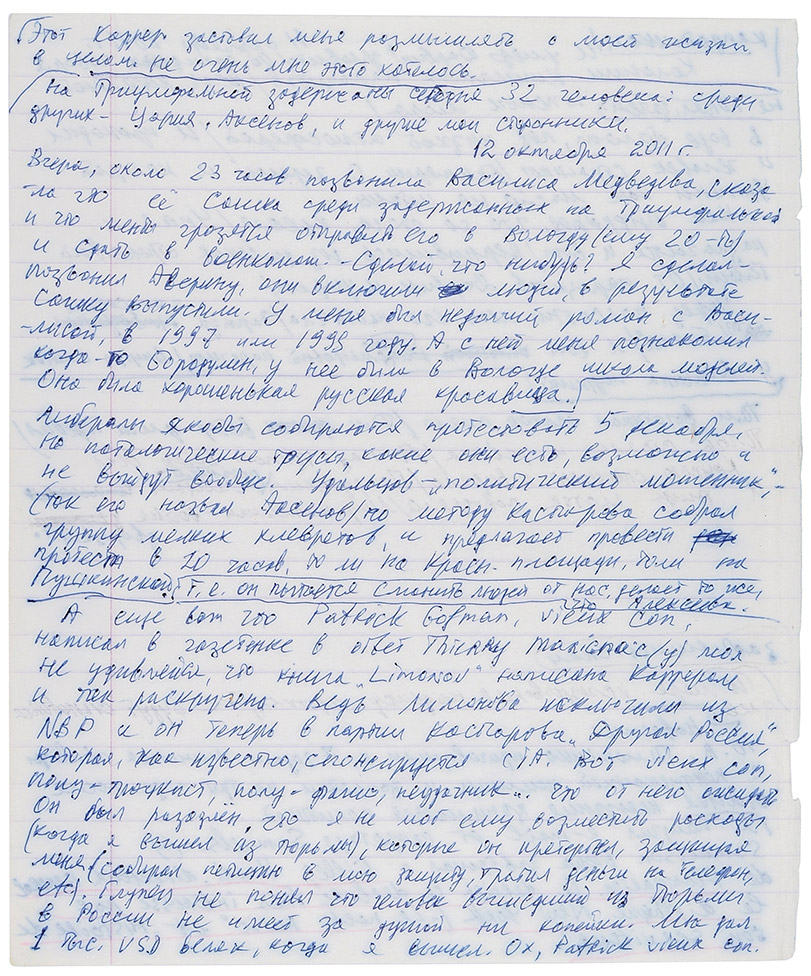 Этот Каррер заставил меня размышлять о моей жизни
в целом. Не очень мне этого хотелось.
На Триумфальной задержаны сегодня 32 человека: среди
других – Аксёнов, и другие мои сторонники.
12 октября 2011 г.
Вчера, около 23 часов позвонила Василиса Медведева, сказа-
-ла что её Сашка среди задержанных на Триумфальной
и что менты грозятся отправить его в Вологду (ему 20 ть)
и сдать в военкомат. – Сделай, что нибудь? Я сделал –
позвонил Аверину, они включили людей, в результате
Сашку выпустили. У меня был недолгий роман с Васи-
-лисой, в 1997 или 1998 году. А с ней меня познакомил
когда-то Бородулин, у неё была в Вологде школа моделей.
Она была хорошенькая русская красавица.
Либералы якобы собираются протестовать 5 декабря,
но патологические трусы, какие они есть, возможно и
не выйдут вообще. Удальцов – „политический мошенник",–
(так его назвал Аксенов) по методу Каспарова собрал
группу мелких клевретов, и предлагает провести
протест в 20 часов, то ли на Красн. площади, то ли на
Пушкинской. Т. е. он пытается сманить людей от нас, делает то же,
что Алексеева.
А еще вот что Patrick Gofman, vieux con,
написал в газетенке в ответ Thierry Marignac(у) мол
не удивляйся, что книга „Limonov" написана Каррером
и так раскручена. Ведь Лимонова исключили из
NBP и он теперь в партии Каспарова „Другая Россия",
которая, как известно, спонсируется CIA. Вот vieux con,
полу-троцкист, полу-фашо, неудачник... что от него ожидать
Он был разозлён, что я не мог ему возместить расходы
(когда я вышел из тюрьмы), которые он претерпел, защищая
меня (собирал петицию в мою защиту, тратил деньги на телефон,
etc). Глупец не понял что человек вышедший из тюрьмы
в России не имеет за душой ни копейки. Мне дал
1 тыс. USD Белак, когда я вышел. Ох, Patrick vieux con.